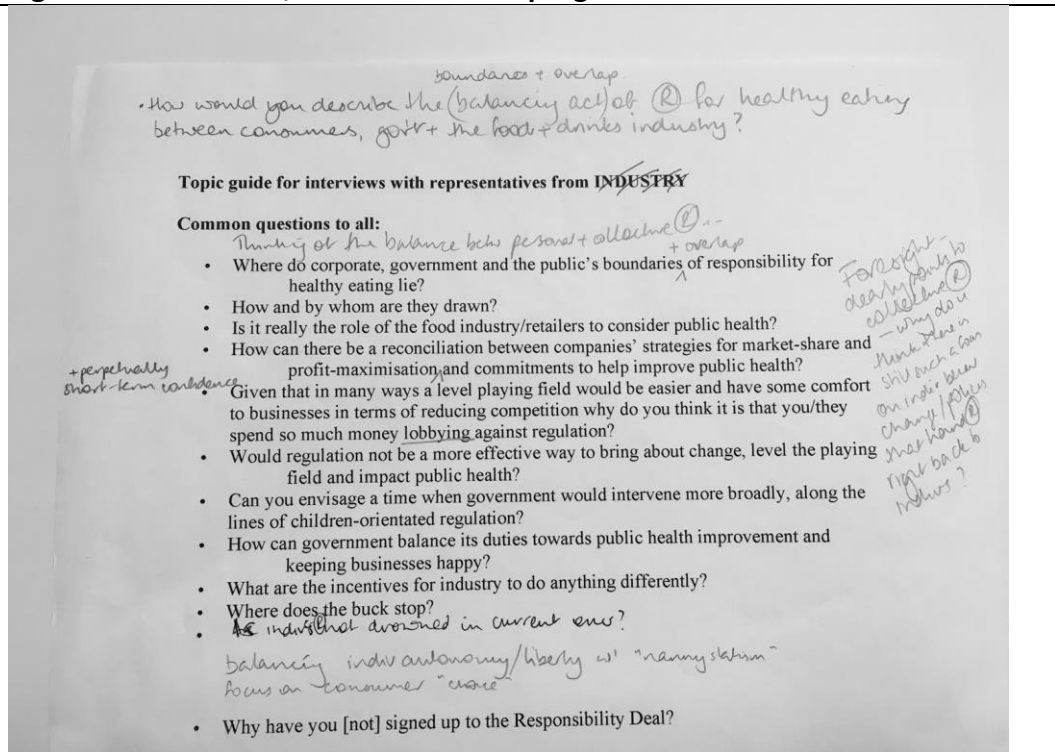 boundaries + overlap
• How would you describe the (balancing act) of Ⓡ for healthy eating
between consumers, gov't + the food + drinks industry?
Topic guide for interviews with representatives from INDUSTRY
Common questions to all:
Thinking of the balance betw personal + collective Ⓡ...
+ overlap
• Where do corporate, government and the public's boundaries of responsibility for
healthy eating lie?
• How and by whom are they drawn?
• Is it really the role of the food industry/retailers to consider public health?
• How can there be a reconciliation between companies' strategies for market-share and
profit-maximisation and commitments to help improve public health?
+ perpetually
short-term confidence
• Given that in many ways a level playing field would be easier and have some comfort
to businesses in terms of reducing competition why do you think it is that you/they
spend so much money lobbying against regulation?
• Would regulation not be a more effective way to bring about change, level the playing
field and impact public health?
• Can you envisage a time when government would intervene more broadly, along the
lines of children-orientated regulation?
• How can government balance its duties towards public health improvement and
keeping businesses happy?
• What are the incentives for industry to do anything differently?
• Where does the buck stop?
• indivs drowned in current
balancing indiv autonomy/liberty w' "nanny statism"
focus on consumer "choice"
• Why have you [not] signed up to the Responsibility Deal?
Foresight -
clearly points to
collective Ⓡ
- why do u
think there is
still such a focus
on indiv behav
change/policies
that hand Ⓡ
right back to
indivs?